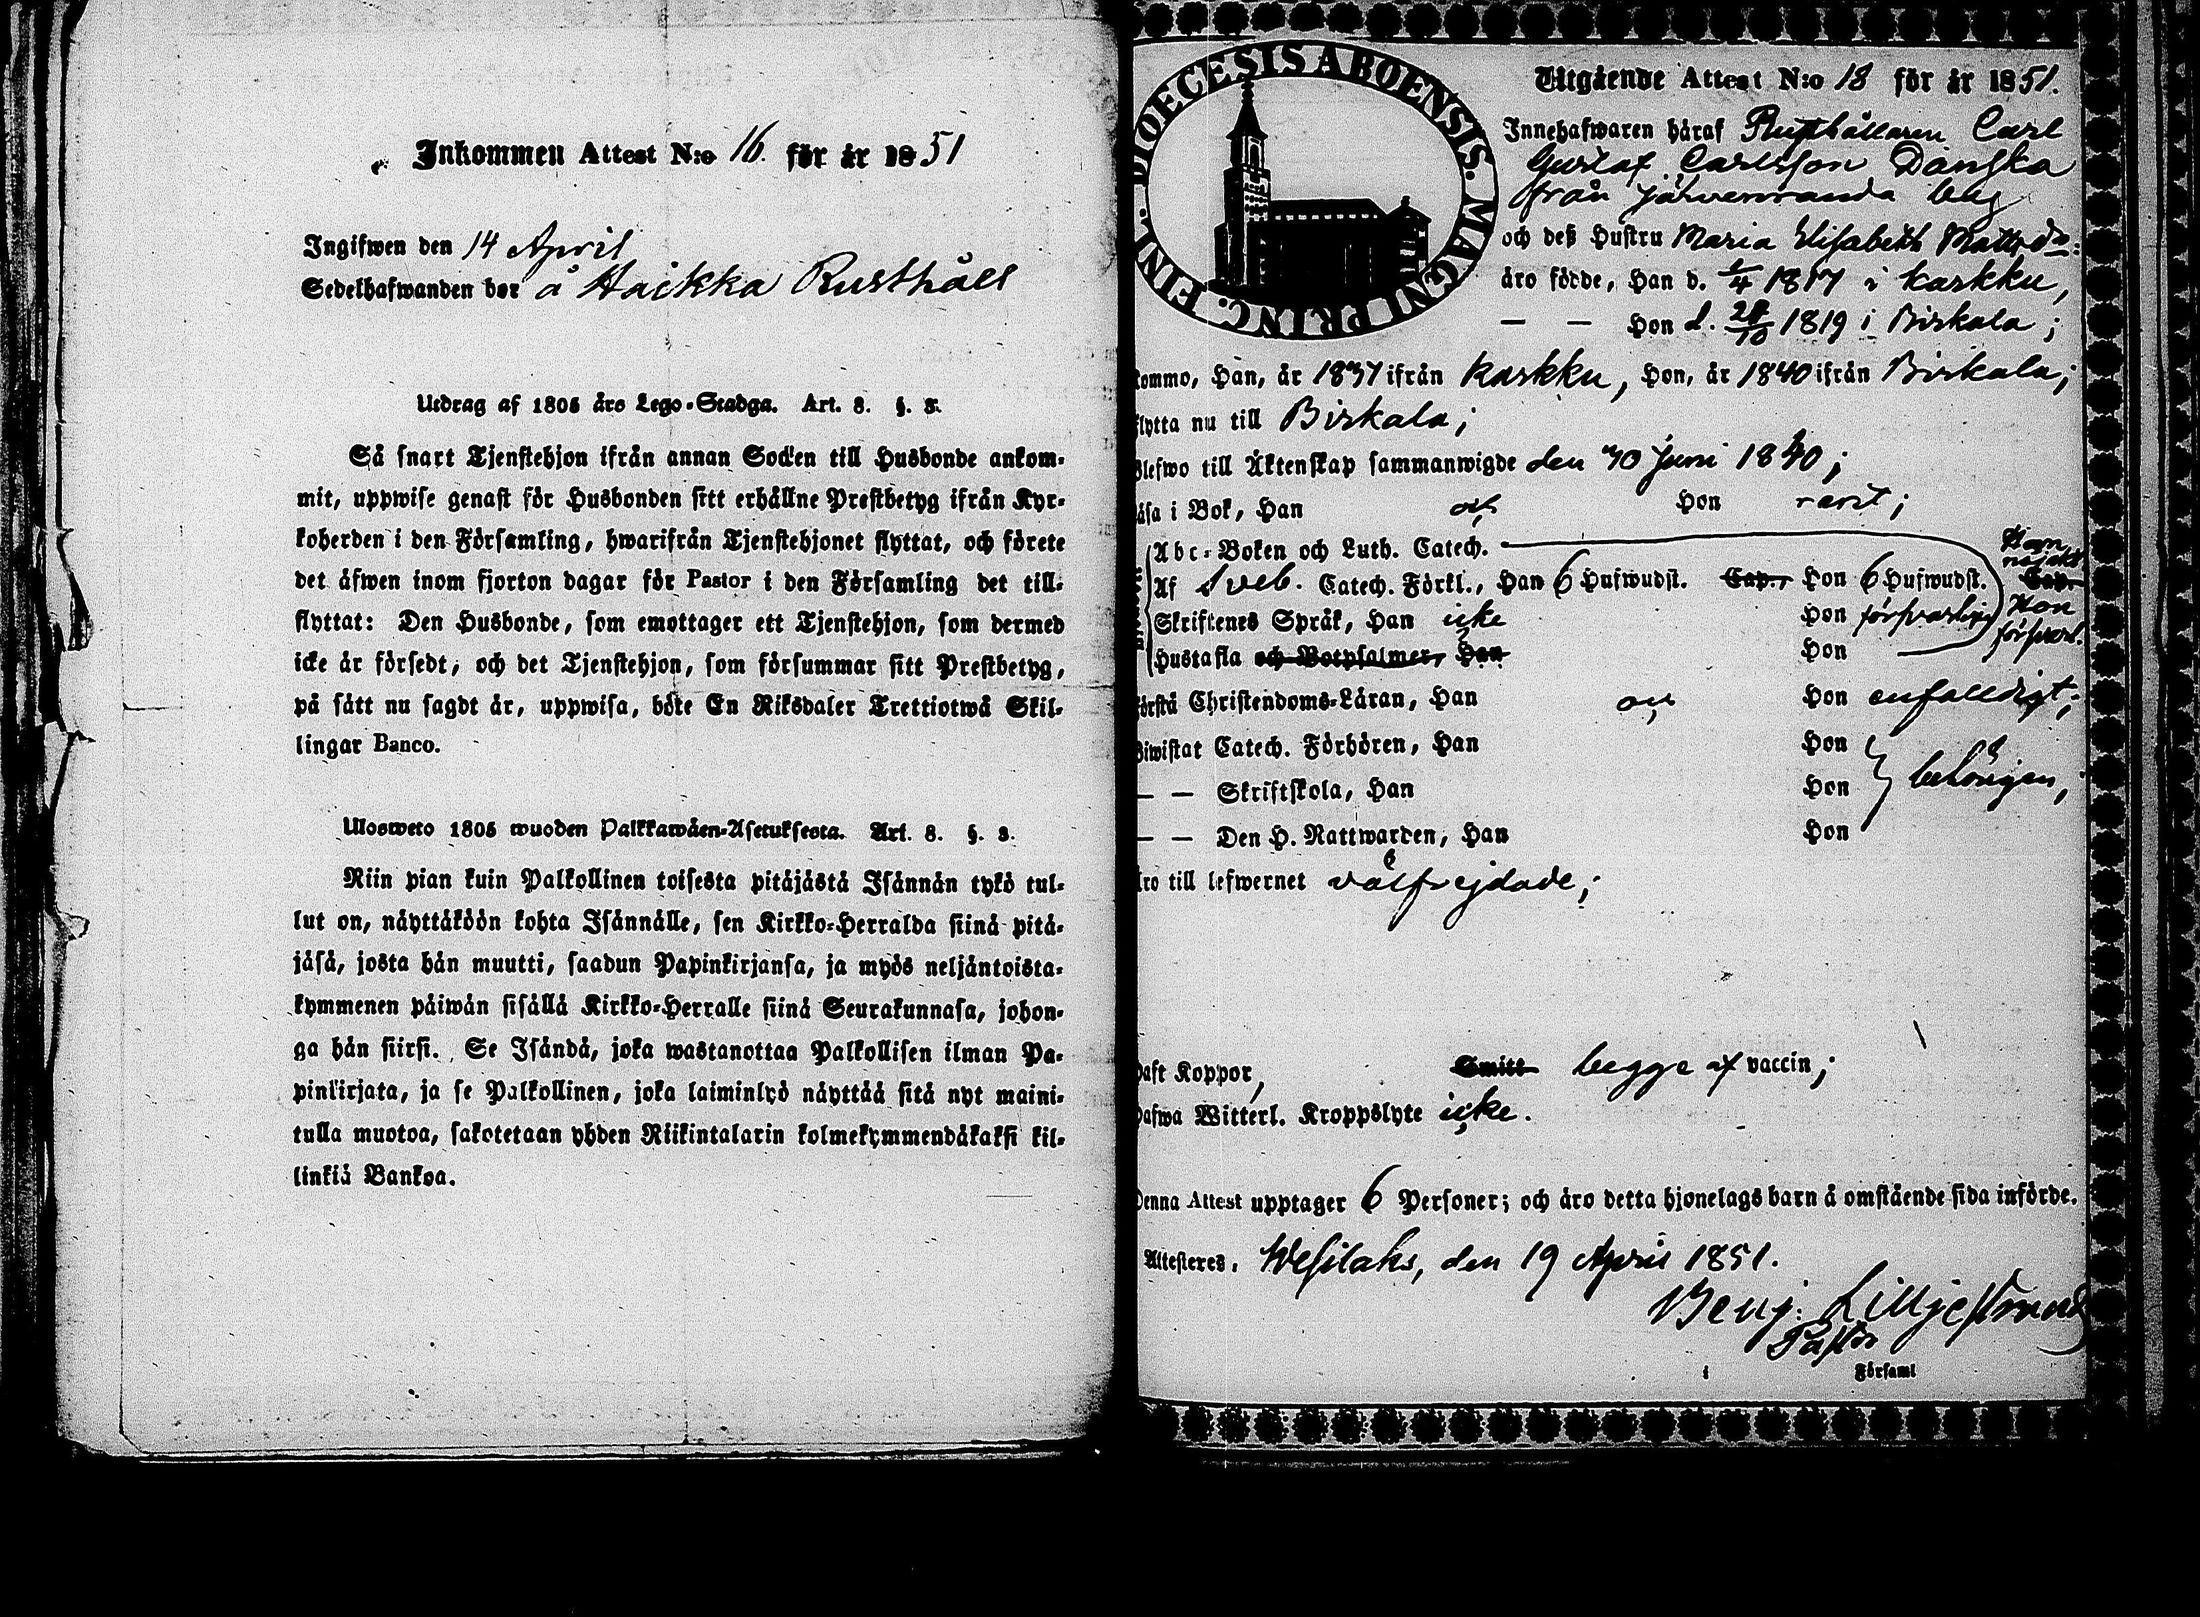 Inkommen Attest N:o 16. för år 1851
Ingifwen den 14 April
Sedelhafwanden bor å Haikka Rusthåll
Utdrag af 1805 års Lego-Stadga. Art. 8. §. 3.
Så snart Tjenstehjon ifrån annan Socken till Husbonde ankom-
mit, uppwise genast för Husbonden sitt erhållne Prestbetyg ifrån Kyr-
koherden i den Församling, hwarifrån Tjenstehjonet flyttat, och förete
det äfwen inom fjorton dagar för Pastor i den Församling det till-
flyttat: Den Husbonde, som emottager ett Tjenstehjon, som dermed
icke är försedt, och det Tjenstehjon, som försummar sitt Prestbetyg,
på sätt nu sagdt är, uppwisa, böte En Riksdaler Trettiotwå Skil-
lingar Banco.
Ulosweto 1805 wuoden Palkkawäen-Asetuksesta. Art. 8. §. 3.
Niin pian kuin Palkollinen toisesta pitäjästä Isännän tykö tul-
lut on, näyttäköön kohta Isännälle, sen Kirkko-Herralda siinä pitä-
jäsä, josta hän muutti, saadun Papinkirjansa, ja myös neljäntoista-
kymmenen päiwän sisällä Kirkko-Herralle siinä Seurakunnasa, johon-
ga hän siirsi. Se Isändä, joka wastanottaa Palkollisen ilman Pa-
pinkirjata, ja se Palkollinen, joka laiminlyö näyttää sitä nyt maini-
tulla muotoa, sakotetaan yhden Riikintalarin kolmekymmendäkaksi kil-
linkiä Bankoa.
DIOECESIS ABOENSIS. MAGNI PRINC. FINL.
Utgående Attest N:o 18 för år 1851.
Innehafwaren häraf Rusthållaren Carl
Gustaf Carlsson Danska
från Järvenranda by
och deß Hustru Maria Elisabeth Mattsdr:
äro födde, Han d. 1817 i Karkku,
— — Hon d. 1819 i Birkala;
kommo, Han, år 1837 ifrån Karkku, Hon, år 1840 ifrån Birkala;
flytta nu till Birkala;
Blefwo till Äktenskap sammanwigde den 30 Juni 1840;
läsa i Bok, Han och Hon rent;
Abc-Boken och Luth. Catech.
Af Sveb. Catech. Förkl., Han 6 Hufwudst. Cap., Hon 6 Hufwudst. Cap.
Skriftenes Språk, Han icke Hon försvarlig
Hustafla och Botpsalmer, Han Hon
Hon försvarl.
förstå Christendoms-Läran, Han och Hon enfalldigt;
Biwistat Catech. Förhören, Han Hon
— — Skriftskola, Han Hon behörigen;
— — Den H. Nattwarden, Han Hon
äro till lefwernet välfrejdade;
haft Koppor, Smitt begge af vaccin;
hafwa Witterl. Kroppslyte icke.
Denna Attest upptager 6 Personer; och äro detta hjonelags barn å omstående sida införde.
Attesteres. Wesilaks, den 19 April 1851.
Benj: Lilljestrand
Pastor
i Församl